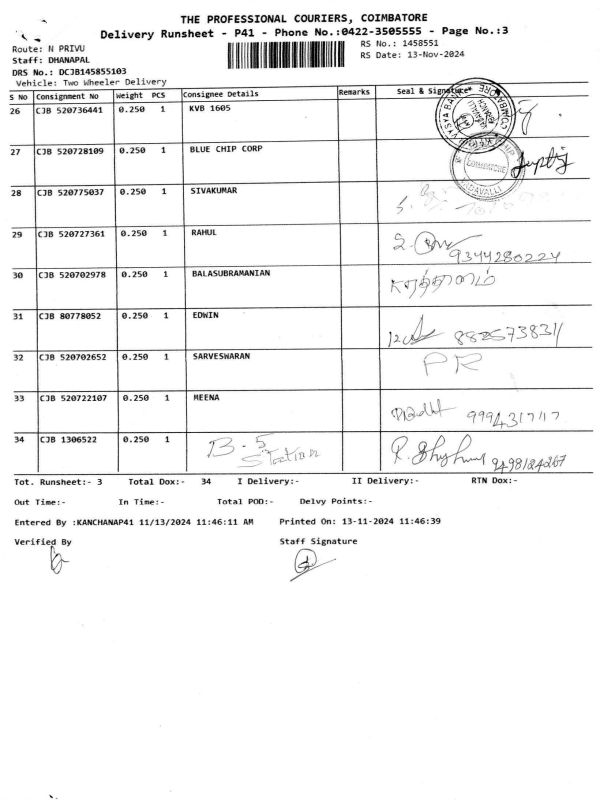 THE PROFESSIONAL COURIERS, COIMBATORE
Delivery Runsheet - P41 - Phone No.:0422-3505555 - Page No.:3
Route: N PRIVU
RS No.: 1458551
Staff: DHANAPAL
RS Date: 13-Nov-2024
DRS No.: DCJB145855103
Vehicle: Two Wheeler Delivery
S No Consignment No Weight PCS Consignee Details Remarks Seal & Signature
26 CJB 520736441 0.250 1 KVB 1605
27 CJB 520728109 0.250 1 BLUE CHIP CORP
COIMBATORE
28 CJB 520775037 0.250 1 SIVAKUMAR
29 CJB 520727361 0.250 1 RAHUL
9344280224
30 CJB 520702978 0.250 1 BALASUBRAMANIAN
31 CJB 80778052 0.250 1 EDWIN
32 CJB 520702652 0.250 1 SARVESWARAN PR
33 CJB 520722107 0.250 1 MEENA
34 CJB 1306522 0.250 1 B-5
Station
9498124267
Tot. Runsheet:- 3 Total Dox:- 34 I Delivery:- II Delivery:- RTN Dox:-
Out Time:- In Time:- Total POD:- Delvy Points:-
Entered By :KANCHANAP41 11/13/2024 11:46:11 AM Printed On: 13-11-2024 11:46:39
Verified By Staff Signature